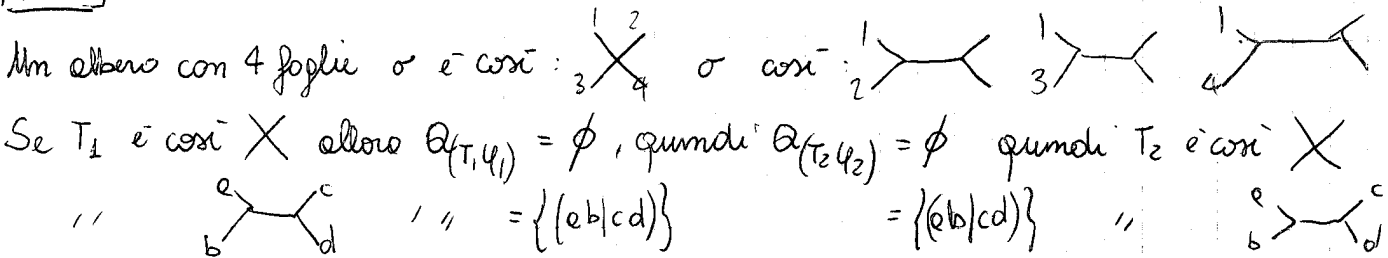 Un albero con 4 foglie o è così: 1 2 3 4 o così: 1 2 1 3 1 4
Se T₁ è così X allora Q(T₁φ₁) = ∅, quindi Q(T₂φ₂) = ∅ quindi T₂ è così X
" a b c d " " = {(ab|cd)} = {(ab|cd)} " a b c d